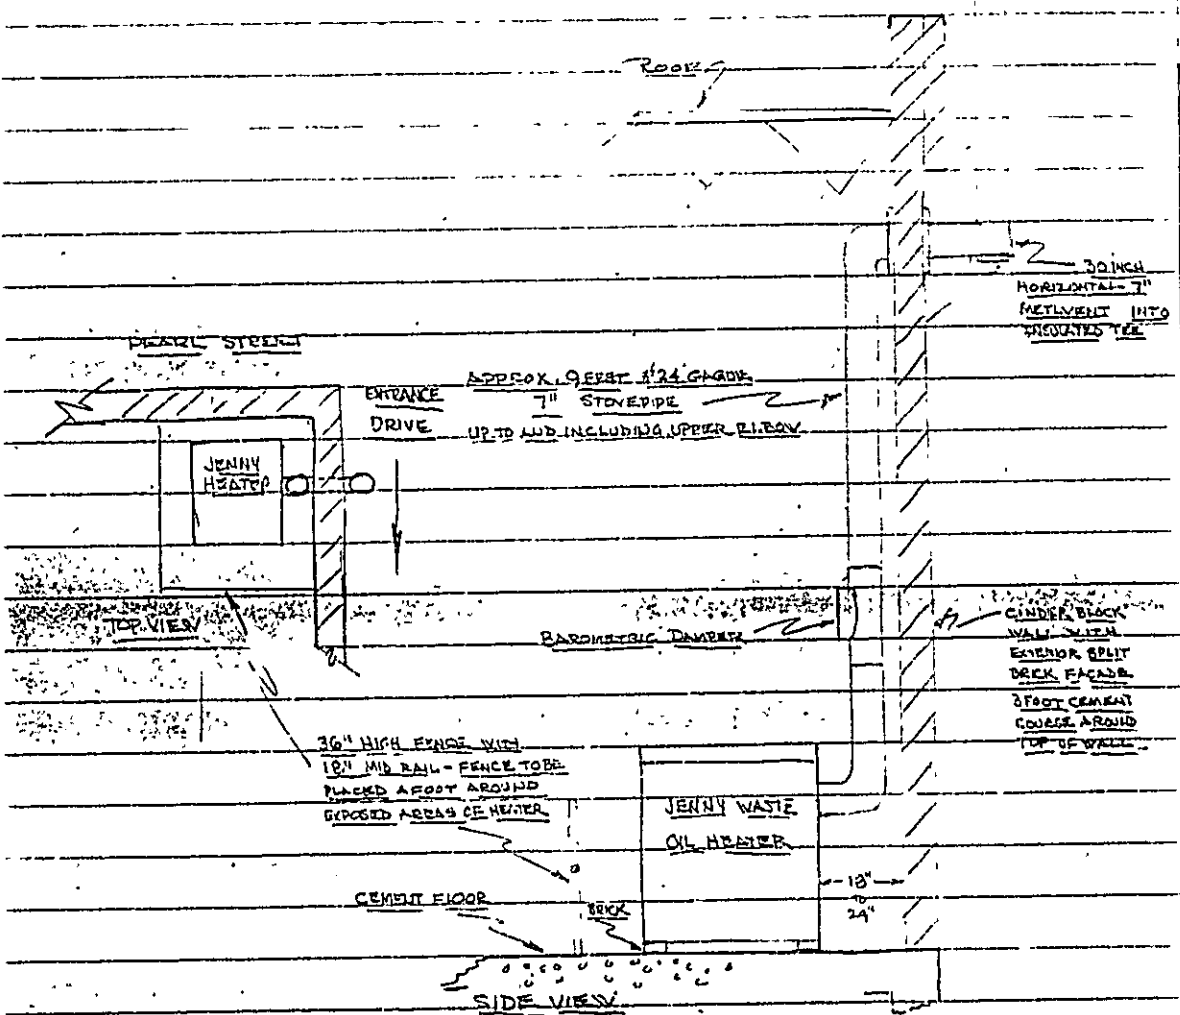 ROOF
30 INCH
HORIZONTAL 7"
METLVENT INTO
INSULATED TEE
PEARL STREET
ENTRANCE
DRIVE
APPROX. 9 FEET 24 GAGUE
7" STOVEPIPE
UP TO AND INCLUDING UPPER ELBOW
JENNY
HEATER
TOP VIEW
BAROMETRIC DAMPER
CINDER BLOCK
WALL WITH
EXTERIOR SPLIT
BRICK FACADE
3 FOOT CEMENT
COURSE AROUND
TOP OF WALL
36" HIGH FENCE WITH
18" MID RAIL - FENCE TO BE
PLACED A FOOT AROUND
EXPOSED AREAS OF HEATER
JENNY WASTE
OIL HEATER
18"
TO
24"
CEMENT FLOOR
BRICK
SIDE VIEW